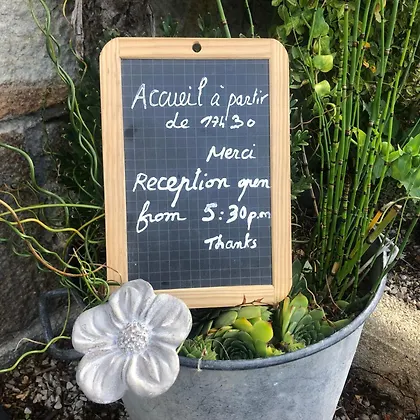 Accueil à partir
de 17h30
Merci
Reception open
from 5:30p.m
Thanks